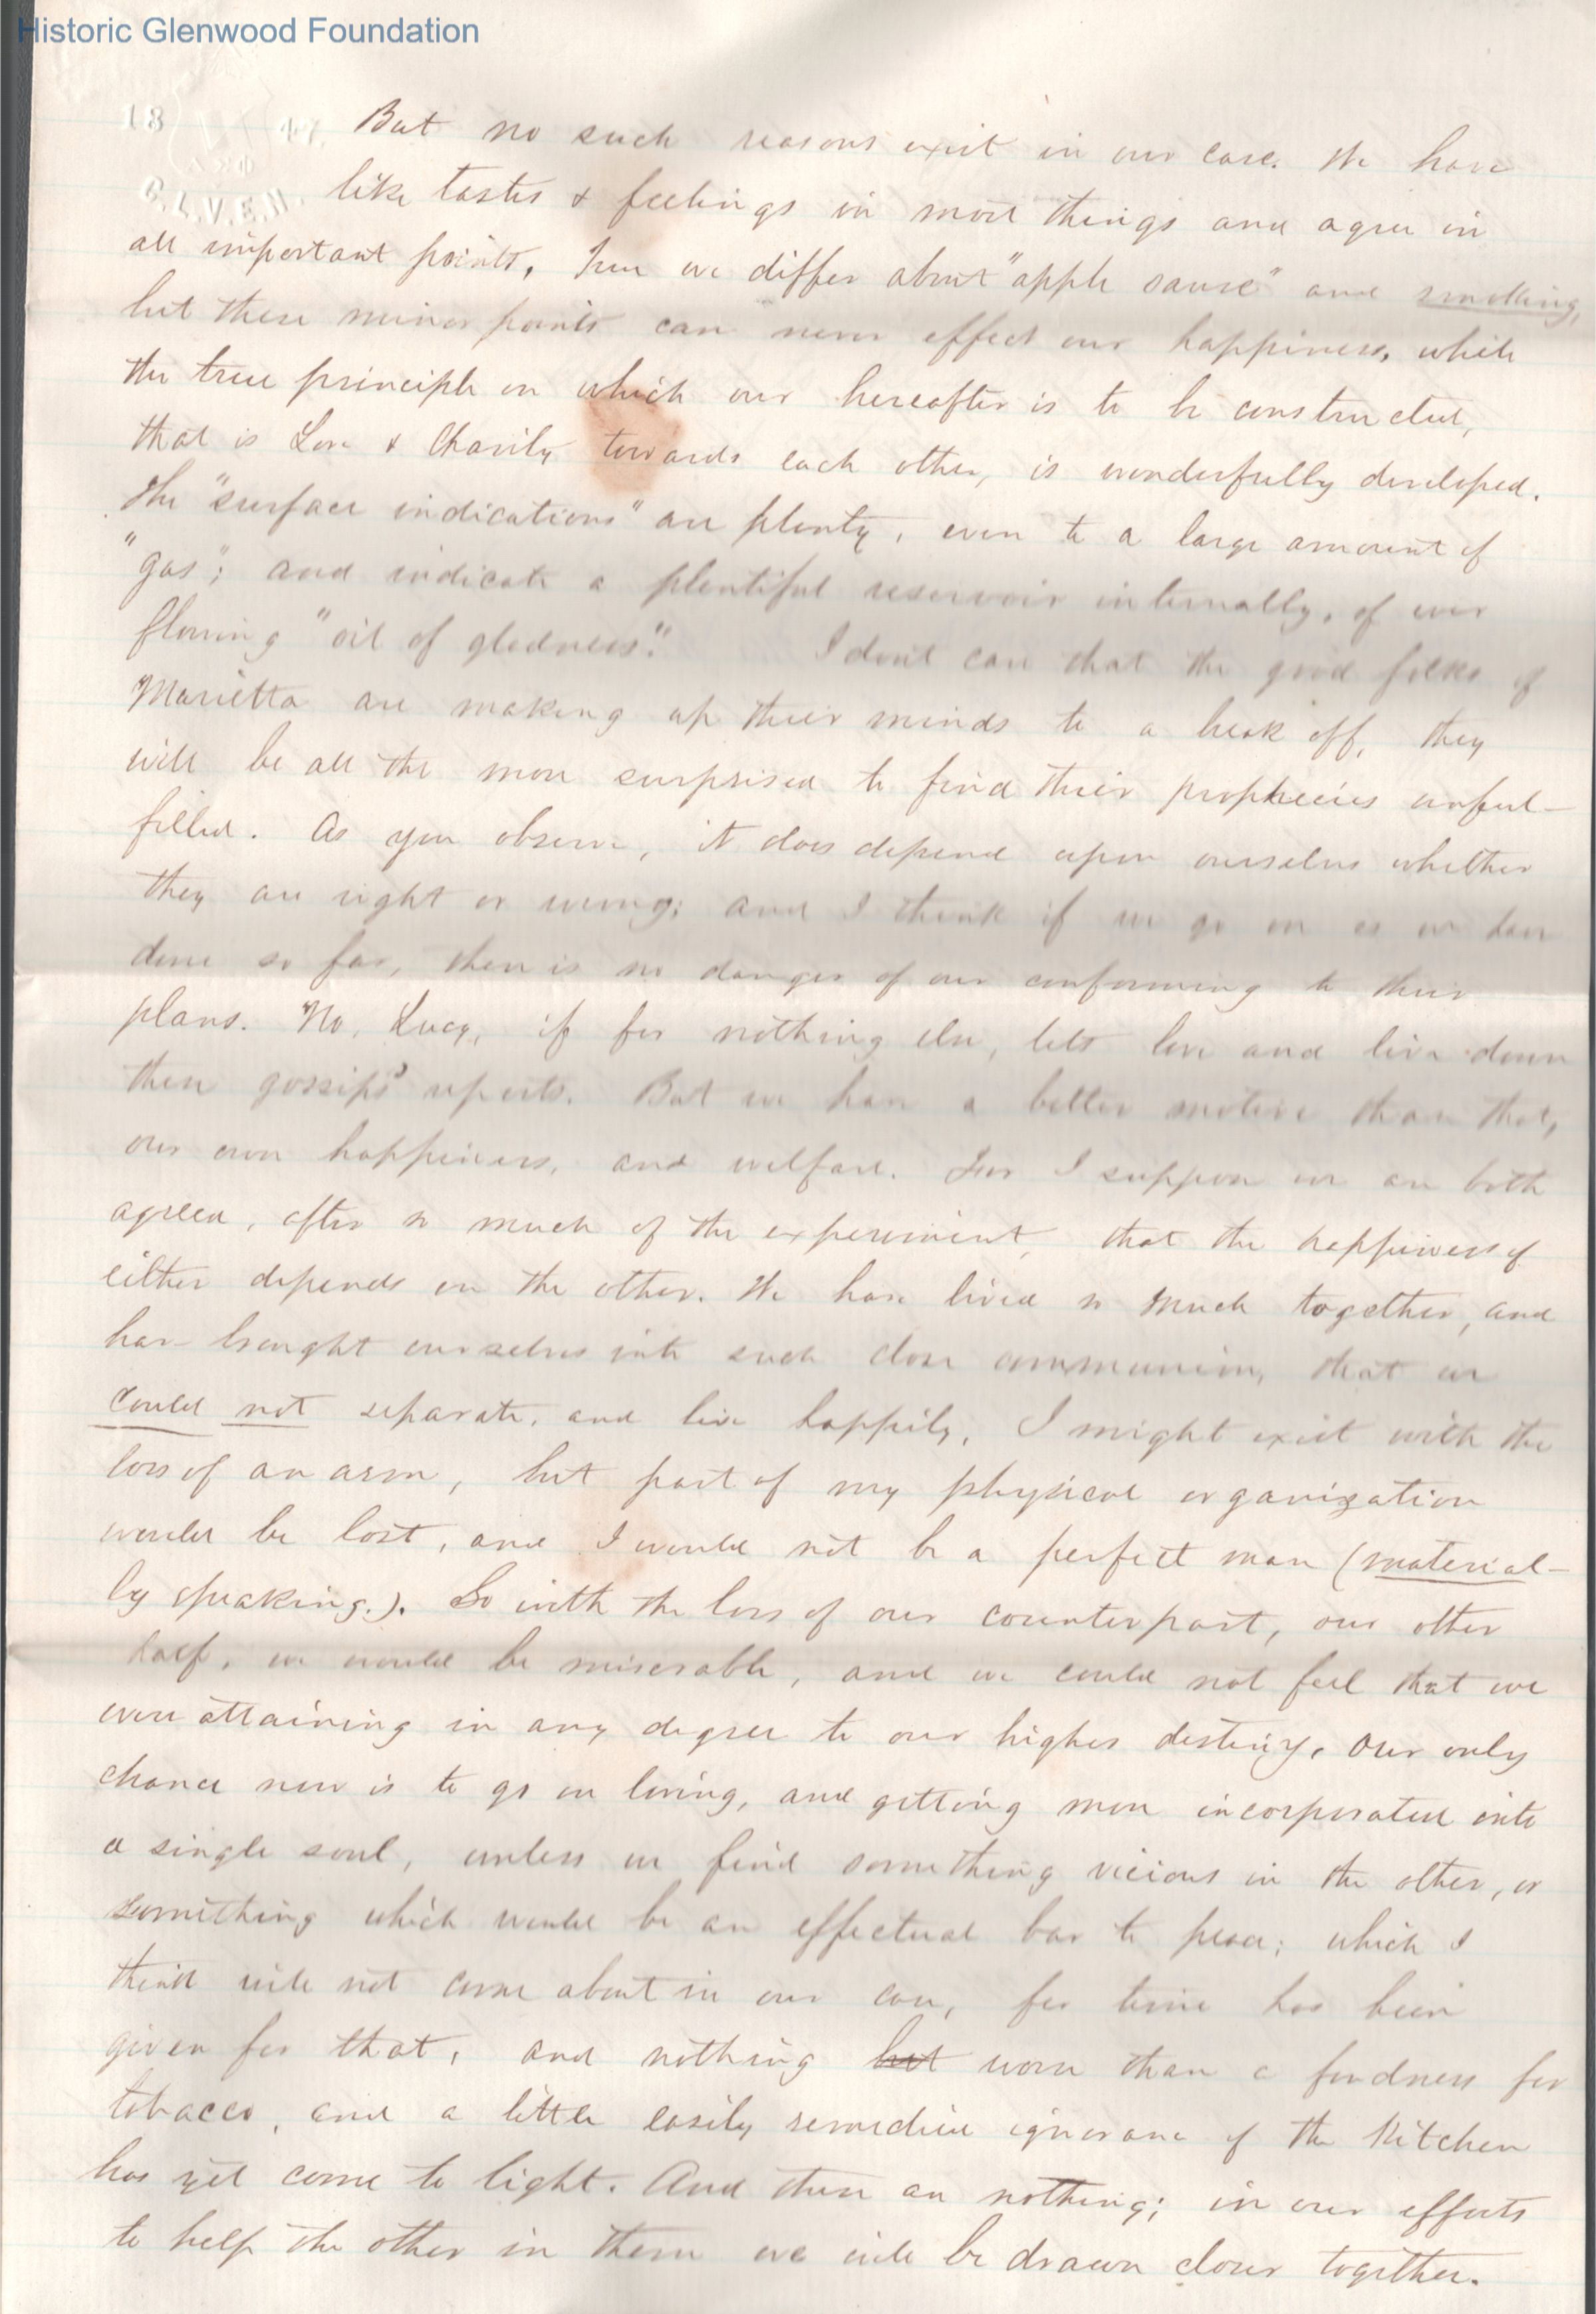 Historic Glenwood Foundation
18 47
But no such reasons exist in our case. We have
G.L.V.E.N.
like tastes & feelings in most things and agree in
all important points. True we differ about "apple sause" and smoking,
but these minor points can never effect our happiness, while
the true principle on which our hereafter is to be constructed,
that is Love & Charity towards each other, is wonderfully developed.
The "surface indications" are plenty, even to a large amount of
"gas"; and indicate a plentiful reservoir internally, of ever
flowing "oil of gladness." I dont care that the good folks of
Marietta are making up their minds to a break off, they
will be all the more surprised to find their prophecies unful-
filled. As you observe, it does depend upon ourselves whether
they are right or wrong; and I think if we go on as we have
done so far, there is no danger of our conforming to their
plans. No, Lucy, if for nothing else, lets love and live down
these gossips' reports. But we have a better motive than that,
our own happiness, and welfare. For I suppose we are both
agreed, after so much of the experiment, that the happiness of
either depends on the other. We have lived so much together, and
have brought ourselves into such close communion, that we
could not separate, and live happily. I might exist with the
loss of an arm, but part of my physical organization
would be lost, and I would not be a perfect man (material-
ly speaking.). So with the loss of our counterpart, our other
half, we would be miserable, and we could not feel that we
were attaining in any degree to our higher destiny. Our only
chance now is to go on loving, and getting more incorporated into
a single soul, unless we find something vicious in the other, or
something which would be an effectual bar to peace; which I
think will not come about in our case, for time has been
given for that, and nothing but worse than a fondness for
tobacco, and a little easily remedied ignorance of the Kitchen
has yet come to light. And these are nothing; in our efforts
to help the other in them we will be drawn closer together.